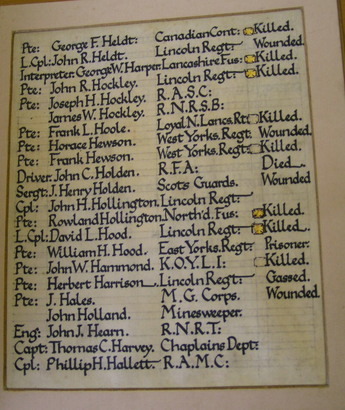 Pte: George F. Heldt: Canadian Cont: Killed.
L.Cpl: John R. Heldt. Lincoln Regt: Wounded.
Interpreter. George W. Harper. Lancashire Fus: Killed.
Pte: John R. Hockley. Lincoln Regt: Killed.
Pte: Joseph H. Hockley. R.A.S.C:
James W. Hockley. R.N.R.S.B:
Pte: Frank L. Hoole. Loyal N. Lancs. Rt: Killed.
Pte: Horace Hewson. West Yorks. Regt: Wounded.
Pte: Frank Hewson. West Yorks. Regt: Killed.
Driver. John C. Holden. R.F.A: Died.
Sergt: J. Henry Holden. Scots Guards. Wounded
Cpl: John H. Hollington. Lincoln Regt:
Pte: Rowland Hollington. North'd. Fus: Killed.
L.Cpl: David L. Hood. Lincoln Regt: Killed.
Pte: William H. Hood. East Yorks. Regt: Prisoner.
Pte: John W. Hammond. K.O.Y.L.I: Killed.
Pte: Herbert Harrison. Lincoln Regt: Gassed.
Pte: J. Hales. M.G. Corps. Wounded.
John Holland. Minesweeper.
Eng: John J. Hearn. R.N.R.T:
Capt: Thomas C. Harvey. Chaplains Dept:
Cpl: Phillip H. Hallett. R.A.M.C: